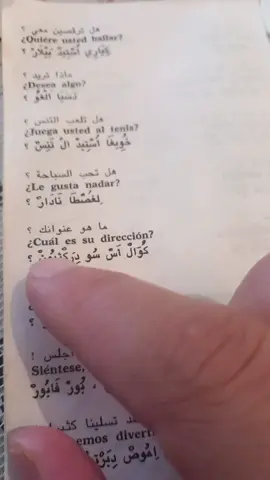 هل ترقصين معي ؟
¿Quiere usted bailar?
كْيَارِي أُسْتِيدْ بَيْلَارْ ؟
ماذا تريد ؟
¿Desea algo?
هل تلعب التنس ؟
¿Juega usted al tenis?
خُوِيغَا أُسْتِيدْ الْ تَنِيسْ ؟
هل تحب السباحة ؟
¿Le gusta nadar?
لِغُسْطَا نَادَارْ ؟
ما هو عنوانك ؟
¿Cuál es su dirección?
كُوَالْ اَسْ سُو
؟
اجلس !
Siéntese,
، بُورْ فَابُورْ
تسلينا
emos divert